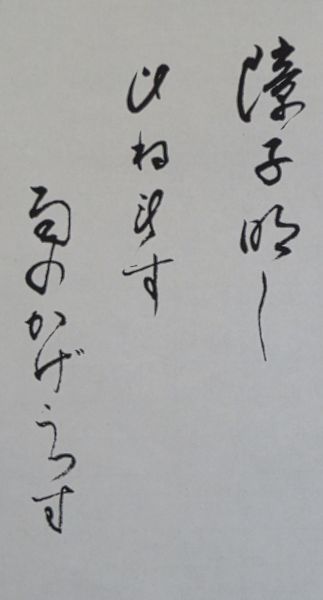 障子明し
ひねもす
雨のかげうつす